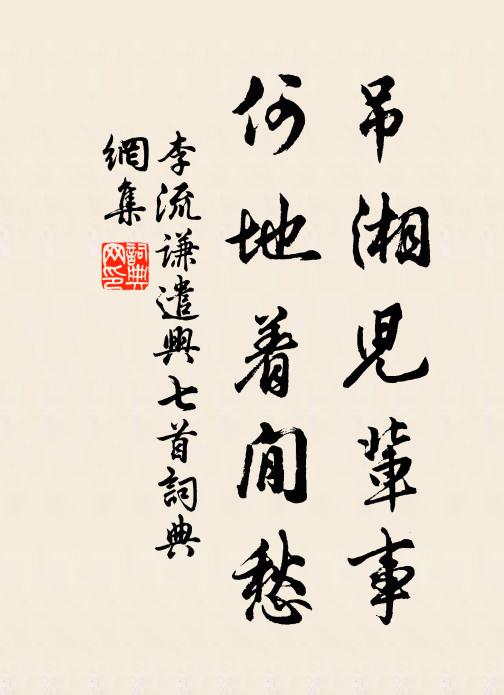 吊湘児輩事
何地着閒愁
李流謙遣興七首詞典
網集
詞典网印